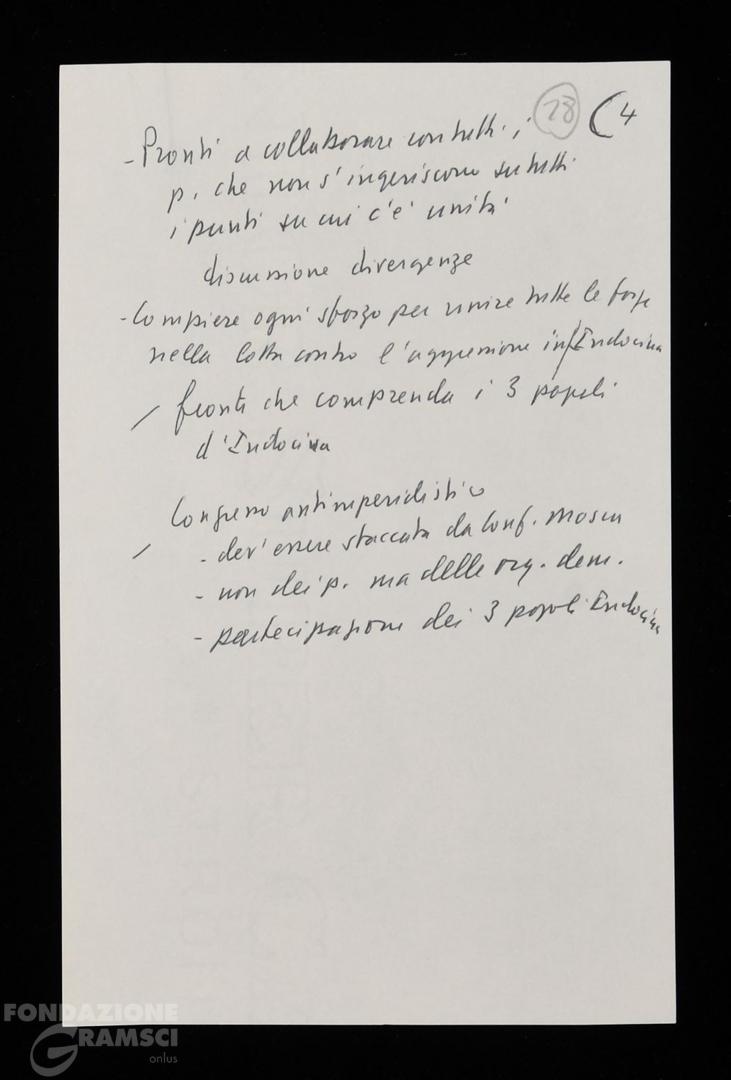 28 (4
- Pronti a collaborare con tutti i
p. che non s'ingeriscono su tutti
i punti su cui c'è unità
discussione divergenze
- Compiere ogni sforzo per unire tutte le forze
nella lotta contro l'aggressione in/Indocina
/ fronte che comprenda i 3 popoli
d'Indocina
Congresso antimperialistico
/ - dev'essere staccata da Conf. Mosca
- non dei p. ma delle org. dem.
- partecipazione dei 3 popoli Indocina
FONDAZIONE
GRAMSCI
onlus